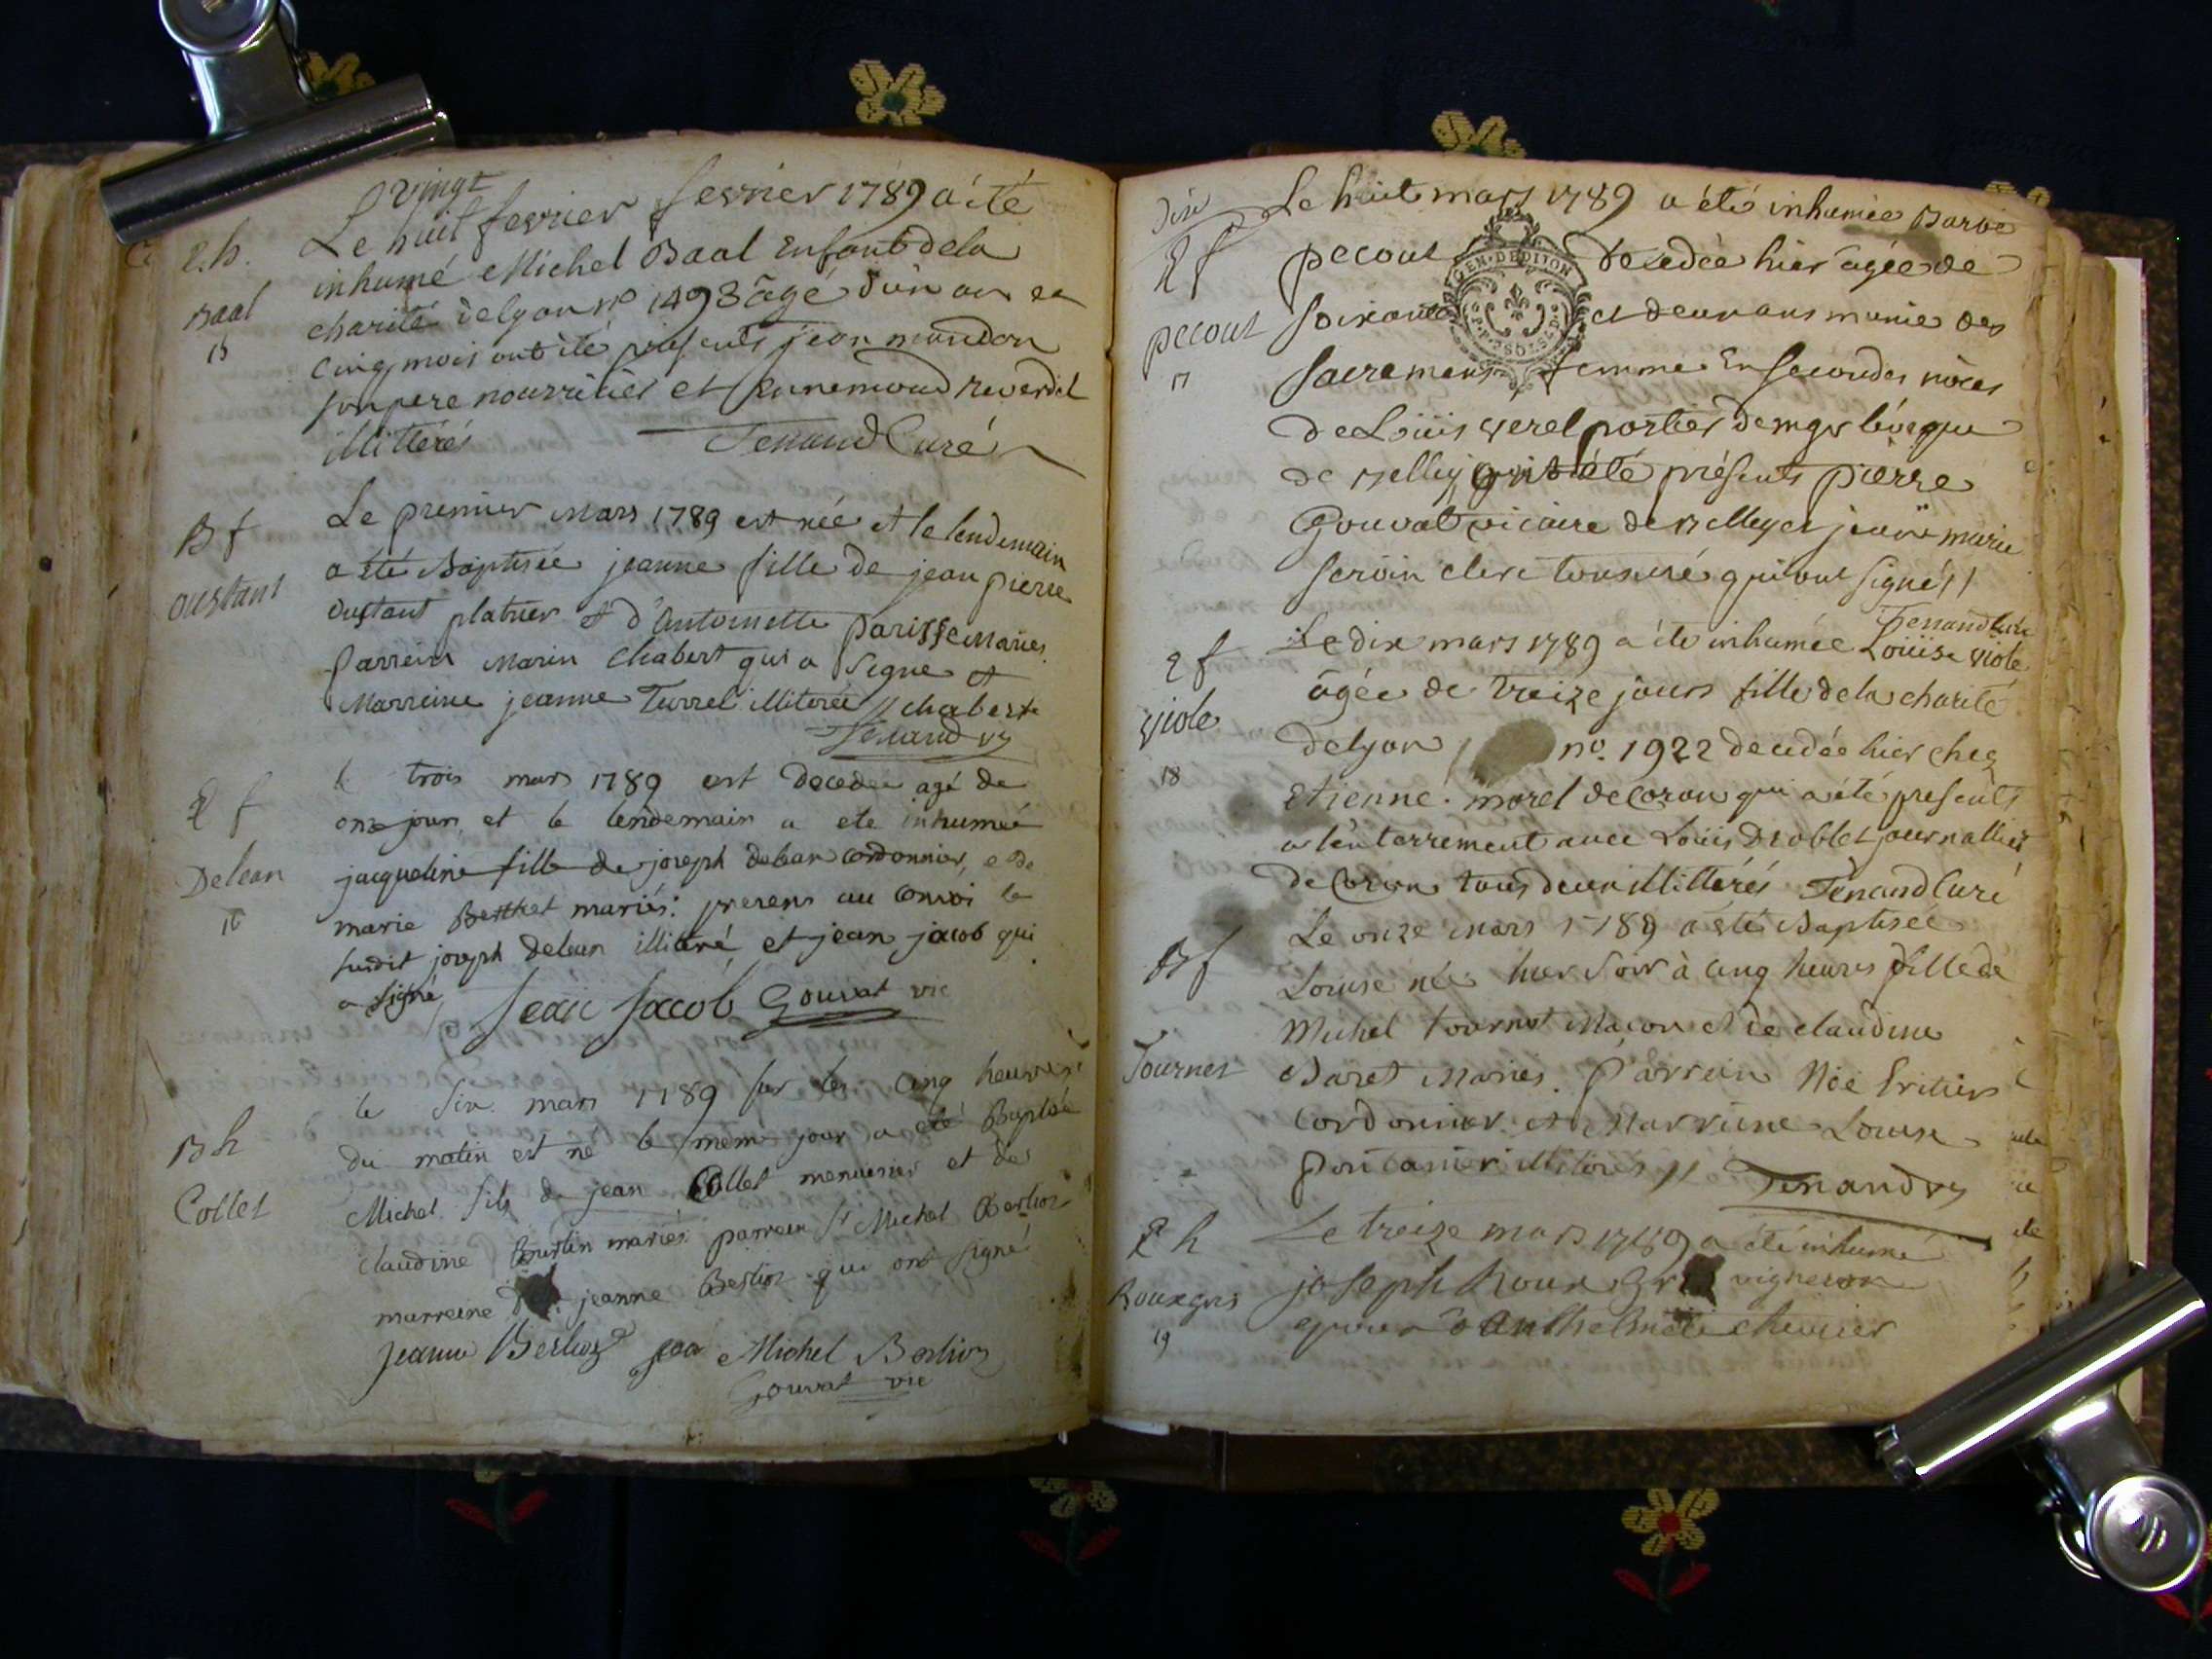 vingt
Le huit fevrier fevrier 1789 a été
inhumé Michel Baal Enfant de la
charité de lyon n° 1493 âgé d'un an et
cinq mois ont été présents jean mandon
son pere nourricier et ennemond reverdel
illitérés Tenand Curé
Le premier Mars 1789 est née et le lendemain
a été Baptisée jeanne fille de jean pierre
oustant platrier et d'antoinette parisse Mariés.
Parrein Marin Chabert qui a signé et
Marreine jeanne Turrel illiterée // chabert
Tenand
le trois mars 1789 est decedée agé de
onze jours, et le lendemain a ete inhumée
jacqueline fille de joseph delean cordonnier, et de
marie Berthet mariés: presens au convoi le
susdit joseph delean illiteré, et jean jacob qui
a signé, Jean Jacob Gouvat vic
le six mars 1789 sur les cinq heures
du matin est né le meme jour a eté Baptisé
Michel fils de jean Collet menuisier et de
claudine Bourlin mariés: parrein Sr Michel Berlioz
marreine jeanne Berlioz qui ont signé
jeanne Berlioz Michel Berlioz
Gouvat vic
S.h.
Baal
15
B f
oustant
S f
Delean
16
B h
Collet
Dixe
Le huit mars 1789 a été inhumée Barbe
pecout decedée hier agée de
soixante et deux ans munie des
sacremens femme En secondes nôces
de Loüis verel portier de mgr lévêque
de Belley ont été présents pierre
Gouvat vicaire de Belley et jean marie
seroin clerc tonsuré qui ont signé //
Tenand Curé
Le dix mars 1789 a été inhumée Loüise viole
âgée de treize jours fille de la charité
de lyon n°. 1922 decedée hier chez
Etienne morel de Coron qui a été presents
a l'enterrement avec Loüis Droblet journallier
de Coron tous deux illittérés Tenand Curé
Le onze Mars 1789 a été Baptisée
Louise née hier soir à cinq heures fille de
Michel Tournet Maçon et de claudine
Daret Mariés. Parrein Noé Eritier
Cordonnier et Marreine Louise
pontanier illitérés // Tenand
Le treize mars 1789 a été inhumé
joseph Roux gris vigneron
epoux d'anthelmete chevrier
S f
pecout
17
S f
viole
18
B f
Tournet
S h
Rouxgris
19
GEN. DE DIJON